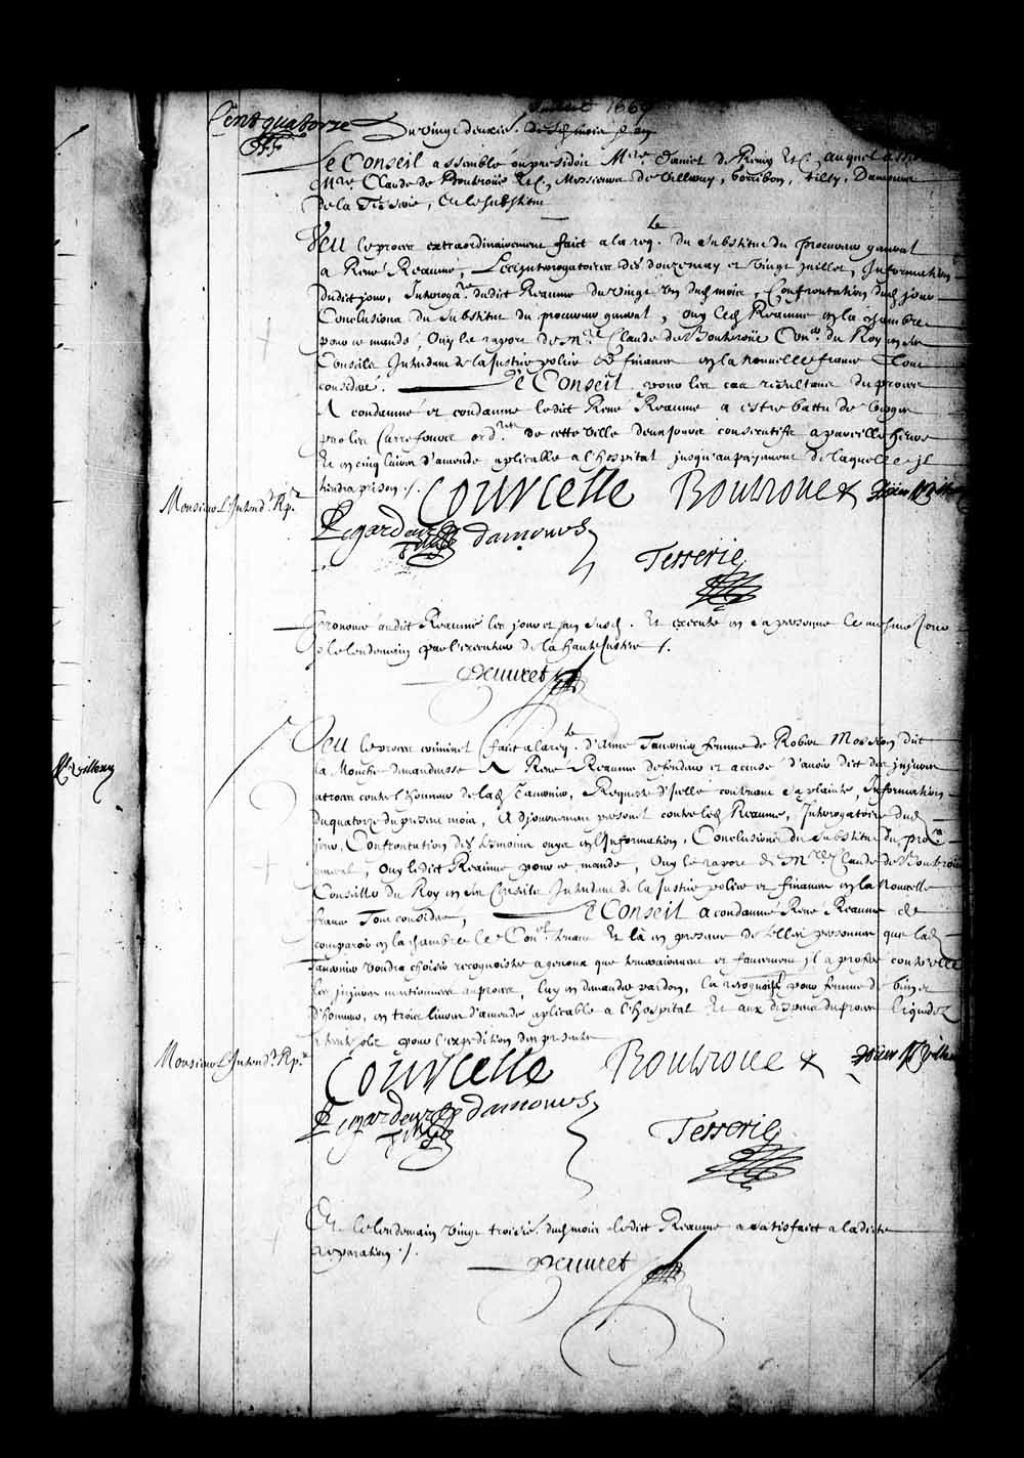 Juillet 1669
Cent quatorze
Du vingt deuxies. desd. mois et an
Le Conseil assemblé ou presidoit Mre Daniel de Remy &c. auquel assis
Mre Claude de Boutroüe &c. Messieurs de Villeray, Gorribon, Tilly, Damours
de la Tesserie, Et le substitut
Veu le proces extraordinairement faict a la reqte. du substitut du procureur general
a René Reaume, Les Interrogatoires des douze may et vingt juillet, Information
dudict jour, Interogare. dudict Reaume du vingt un dud. mois, Confrontation dud. jour
Conclusions du substitut du procureur general, ouy led. Reaume en la chambre
pour ce mandé, Ouy le rapport de Mre Claude de Boutroüe Coner. du Roy en ses
Conseils Intendant de la Justice police et finance en la nouvelle france Tout
consideré. Le Conseil pour les cas resultans du proces
A condamné et condamne ledict René Reaume a estre battu de verges
par les Carrefours ordres de cette ville deux jours consecutifs a pareille heure
Et en cinq livres d'amende aplicable a l'hospital jusqu'au payement de laquelle il
tiendra prison ./.
Monsieur L'Intendt. Rpr.
Courcelle Boutroue
Legardeur Tilly damours
Tesserie
Prononcé audict Reaume les jour et an susd. Et executé en sa personne le mesme jour
et le lendemain par l'executeur de la haute Justice ./.
Peuvret
Villeray
Veu le proces criminel faict a la reqte. d'Anne Tavernier femme de Robert Mossion dict
la Mouche demandresse A René Reaume defendeur et accusé d'avoir dict des injures
atroces contre l'honneur de lad. Tavernier, Requeste d'icelle contenant sa plainte, Information
du quatorze du present mois, Adjournement personel contre led. Reaume, Interogatoire dud.
jour, Confrontation des tesmoins ouys en l'Information, Conclusions du substitut du procur.
general, Ouy ledict Reaume pour ce mandé, Ouy le raport de Mre Claude de Boutroüe
Conseiller du Roy en ses Conseils Intendant de la Justice police et finance en la Nouvelle
france Tout consideré, Le Conseil a condamné René Reaume de
comparoir en la chambre le Conel. tenant Et là en presence de telles personnes que lad.
Tavernier voudra choisir recognoistre a genoux que temerairement et faucement il a proferé contre elle
les injures mentionnées au proces, luy en demander pardon, la recognoist pour femme de bien et
d'honneur, en trois livres d'amende aplicable a l'hospital Et aux despens du proces liquidez
a trente solz pour l'expedition des presentes
Monsieur L'Intendt. Rpr.
Courcelle Boutroue
Legardeur Tilly damours
Tesserie
Et le lendemain vingt troisies. dud. mois ledict Reaume a satisfaict a ladicte
reparation ./.
Peuvret